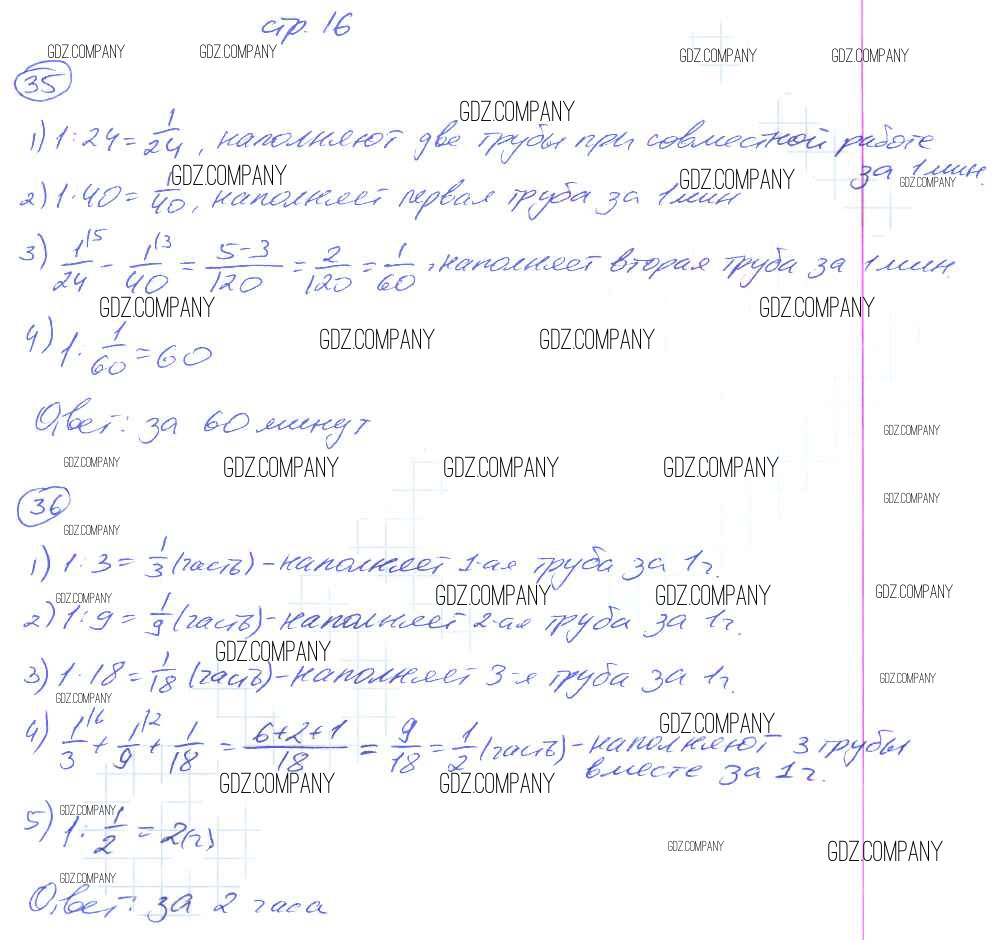 стр. 16
GDZ.COMPANY GDZ.COMPANY GDZ.COMPANY GDZ.COMPANY
35
GDZ.COMPANY
1) 1 : 24 = 1/24, наполняют две трубы при совместной работе
за 1 мин.
GDZ.COMPANY GDZ.COMPANY GDZ.COMPANY
2) 1 : 40 = 1/40, наполняет первая труба за 1 мин
3) 1/24 |5 - 1/40 |3 = 5-3/120 = 2/120 = 1/60, наполняет вторая труба за 1 мин.
GDZ.COMPANY GDZ.COMPANY
4) 1 : 1/60 = 60
GDZ.COMPANY GDZ.COMPANY
Ответ: за 60 минут
GDZ.COMPANY
GDZ.COMPANY GDZ.COMPANY GDZ.COMPANY GDZ.COMPANY
36
GDZ.COMPANY
GDZ.COMPANY
1) 1 : 3 = 1/3 (часть) - наполняет 1-ая труба за 1 ч.
GDZ.COMPANY GDZ.COMPANY GDZ.COMPANY GDZ.COMPANY
2) 1 : 9 = 1/9 (часть) - наполняет 2-ая труба за 1 ч.
GDZ.COMPANY
3) 1 : 18 = 1/18 (часть) - наполняет 3-я труба за 1 ч.
GDZ.COMPANY
GDZ.COMPANY GDZ.COMPANY
4) 1/3 |6 + 1/9 |2 + 1/18 = 6+2+1/18 = 9/18 = 1/2 (часть) - наполняют 3 трубы
вместе за 1 ч.
GDZ.COMPANY GDZ.COMPANY
GDZ.COMPANY
5) 1 : 1/2 = 2 (ч)
GDZ.COMPANY GDZ.COMPANY
GDZ.COMPANY
Ответ: за 2 часа